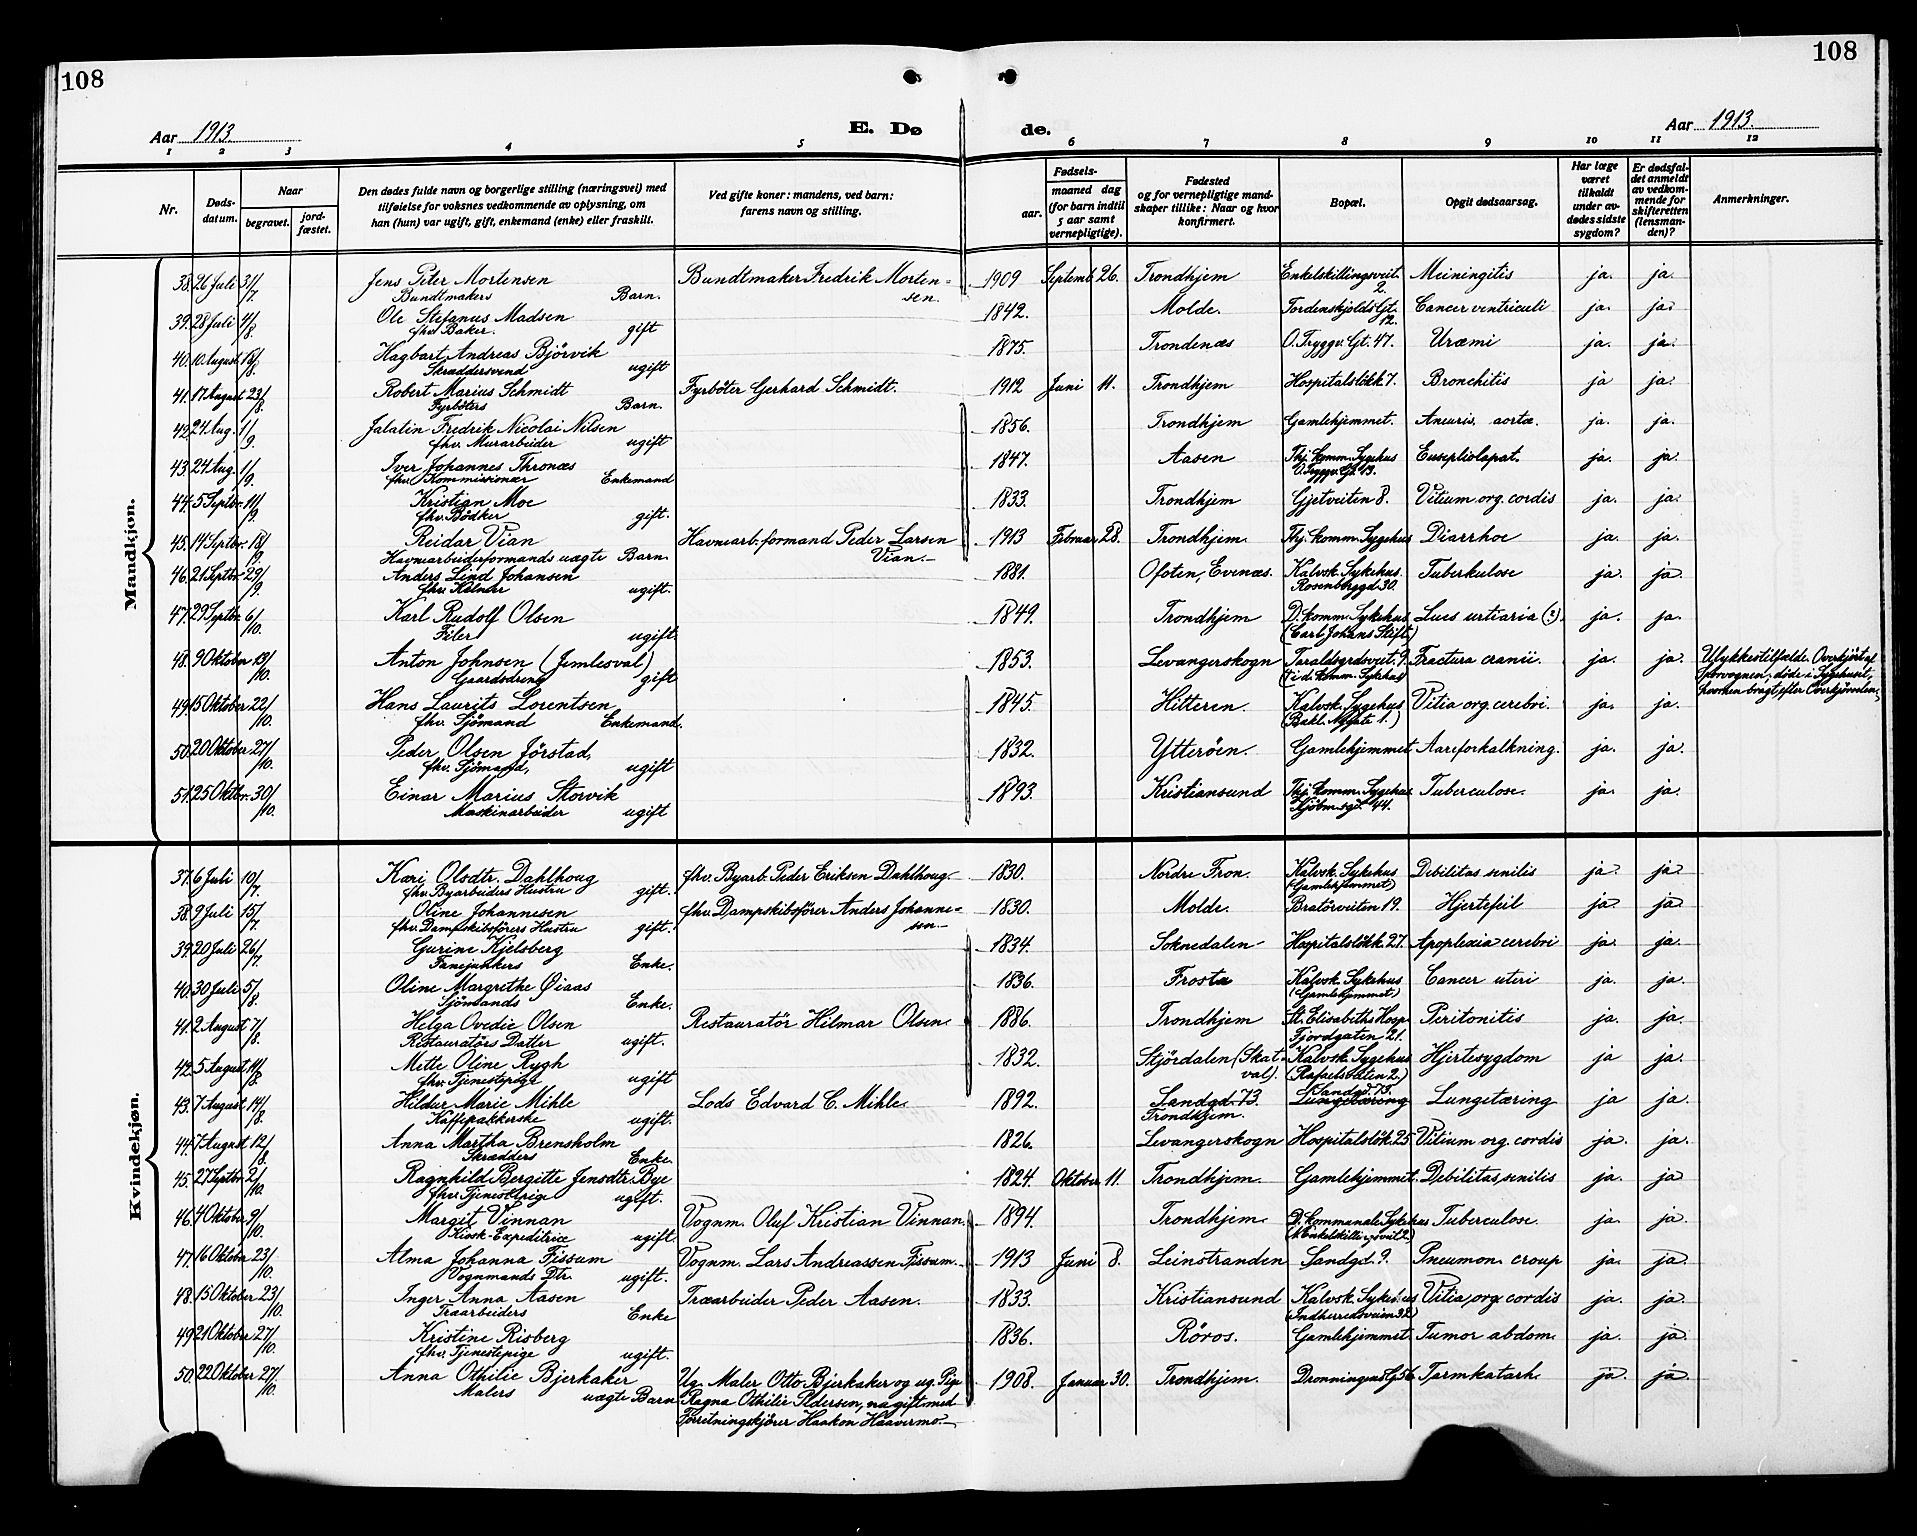 108
108
Aar 1913.
E. Dø
de.
Aar 1913.
1 2 3 4 5 6 7 8 9 10 11 12
Nr.
Døds-
datum.
Naar
begravet.
jord-
fæstet.
Den dødes fulde navn og borgerlige stilling (næringsvei) med
tilføielse for voksnes vedkommende av oplysning, om
han (hun) var ugift, gift, enkemand (enke) eller fraskilt.
Ved gifte koner: mandens, ved barn:
farens navn og stilling.
Fødsels-
aar.
maaned dag
(for barn indtil
5 aar samt
vernepligtige).
Fødested
og for vernepligtige mand-
skaper tillike: Naar og hvor
konfirmert.
Bopæl.
Opgit dødsaarsag.
Har læge
været
tilkaldt
under av-
dødes sidste
sygdom?
Er dødsfal-
det anmeldt
av vedkom-
mende for
skifteretten
(lensman-
den)?
Anmerkninger.
Mandkjøn.
38. 26 Juli 31/7. Jens Peter Mortensen Bundtmaker Fredrik Morten- 1909 Septemb. 26. Trondhjem Enkelskillingsveit. Meiningitis ja. ja.
Bundtmakers Barn. sen. 2.
39. 28 Juli 4/8. Ole Stefanus Madsen 1842. Molde. Tordenskjolds Gt. Cancer ventriculi ja. ja.
fhv. Baker. gift 12.
40. 10 August 18/8. Hagbart Andreas Bjørvik 1875. Trondenæs O. Tryggv. Gt. 47. Uræmi ja. ja.
Skræddersvend ugift
41. 17 August 23/8. Robert Marius Schmidt Fyrbøter Gerhard Schmidt. 1912 Juni 11. Trondhjem Hospitalsløkk. 7. Bronchitis ja ja.
Fyrbøters Barn.
42. 24 Aug. 1/9. Jalatin Fredrik Nicolai Nilsen 1856. Trondhjem Gamlehjemmet. Aneuris. aortæ. ja. ja.
fhv. Murarbeider ugift
43. 24 Aug. 1/9. Iver Johannes Thronæs 1847. Aasen Thj. komm. Sygehus ja. ja.
fhv. Kommissionær Enkemand O. Tryggv. Gt. 13.
44. 5 Septbr. 11/9. Kristian Moe 1833. Trondhjem Gjetveiten 8. Vitium org. cordis ja. ja.
fhv. Bødker gift.
45. 14 Septbr. 18/9. Reidar Vian Havnearb. formand Peder Larsen 1913 Februar 28. Trondhjem Thj. komm. Sygehus Diarrhoe ja. ja.
Havnearbeiderformands uægte Barn. Vian.
46. 21 Septbr. 29/9. Anders Lind Johansen 1881. Ofoten, Evenæs. Kalvsk. Sykehus. Tuberkulose ja. ja.
fhv. Kelner ugift. Rosenborggt 30.
47. 29 Septbr. 6/10. Karl Rudolf Olsen 1849. Trondhjem D. komm. Sykehus Lues urtiaria (?). ja. ja.
Feiler ugift (Carl Johans Stift.)
48. 9 Oktober 13/10. Anton Johnsen (Jemlesval) 1853. Levangerskogn Taraldsgrdsveit. 9. Fractura cranii. ja. ja. Ulykkestilfælde. Overkjørt af
Gaardsdreng gift (i d. komm. Sykehus) Sporvognen, døde i Sygehuset,
49. 15 Oktober 22/10. Hans Laurits Lorentsen 1845. Hitteren. Kalvsk. Sygehus Vitia org. cerebri. ja. ja. hvorhen bragt efter Overkjørselen.
fhv. Sjømand Enkemand. (Bakl. Mgate 1.)
50. 20 Oktober 27/10. Peder Olsen Jørstad, 1832. Ytterøen. Gamlehjemmet Aareforkalkning. ja. ja.
fhv. Sjømand, ugift
51. 25 Oktbr. 30/10. Einar Marius Storvik 1893. Kristiansund Thj. komm. Sygehus Tuberculose. ja. ja.
Maskinarbeider ugift Kjøbm. gt. 44.
Kvindekjøn.
37. 6 Juli 10/7. Kari Olsdtr. Dahlhoug fhv. Byarb. Peder Eriksen Dahlhoug. 1830. Nordre Fron. Kalvsk. Sykehus Debilitas senilis ja. ja.
fhv. Byarbeiders Hustru gift. (Gamlehjemmet)
38. 9 Juli 15/7. Oline Johannesen fhv. Dampskibsfører Anders Johanne- 1830. Molde. Bratørveiten 19. Hjertefeil ja. ja.
fhv. Dampskibsførers Hustru gift. sen
39. 20 Juli 26/7. Gurine Kjelsberg 1834. Soknedalen Hospitalsløkk. 27. Apoplexia cerebri ja. ja.
Fanejunkers Enke.
40. 30 Juli 5/8. Oline Margrethe Øiaas 1836. Frosta Kalvsk. Sykehus Cancer uteri ja. ja.
Sjømands Enke. (Gamlehjemmet)
41. 2 August 7/8. Helga Ovedie Olsen Restauratør Hilmar Olsen. 1886. Trondhjem St. Elisabeths Hosp. Peritonitis ja. ja.
Restauratørs Datter ugift. Fjordgaten 21.
42. 5 August 11/8. Mette Oline Rygh 1832. Stjørdalen (Skat- Kalvsk. Sygehus Hjertesygdom ja ja.
fhv. Tjenestepige ugift val). (Rafaelsveiten 2.)
43. 7 August 14/8. Hildur Marie Mihle Lods Edvard C. Mihle. 1892. Sandgd. 73. Sandgd. 73. Lungetæring Lungetæring ja ja.
Kaffepakkerske ugift. Trondhjem.
44. 7 August 12/8. Anna Martha Brensholm 1826. Levangerskogn Hospitalsløk. 25 Vitium org. cordis ja. ja.
Skrædders Enke.
45. 27 Septbr. 2/10. Ragnhild Bergitte Jensdtr. Bye 1824. Oktober 11. Trondhjem. Gamlehjemmet. Debilitas senilis ja. ja
fhv. Tjenestepige ugift.
46. 4 Oktober 9/10. Margit Vinnan Vognm. Oluf Kristian Vinnan. 1894. Trondhjem. D. kommunale Sykehus Tuberculose. ja. ja
Kiosk-Expeditrice ugift (Enkelskillingsveit 2)
47. 16 Oktober 23/10. Alma Johanna Fissum Vognm. Lars Andreassen Fissum. 1913 Juni 8. Leinstranden Sandgd. 9. Pneumon. croup ja. ja.
Vognmands Dtr. ugift.
48. 15 Oktober 23/10. Inger Anna Aasen Træarbeider Peder Aasen. 1833. Kristiansund Kalvsk. Sykehus Vitia, org. cordis ja. ja.
Træarbeiders Enke (Indherredsveien 32)
49. 21 Oktober 27/10. Kristine Risberg 1836. Røros. Gamlehjemmet. Tumor abdom. ja. ja.
fhv. Tjenestepige ugift.
50. 22 Oktober 27/10. Anna Othilie Bjerkaker Ug. Maler Otto Bjerkaker og ug. Pige 1908. Januar 30. Trondhjem. Dronningens Gt. 56. Tarmkatarh. ja. ja
Malers uægte Barn Ragna Othilie Pedersen, nu gift med
Forretningskjører Haakon Haavermo.